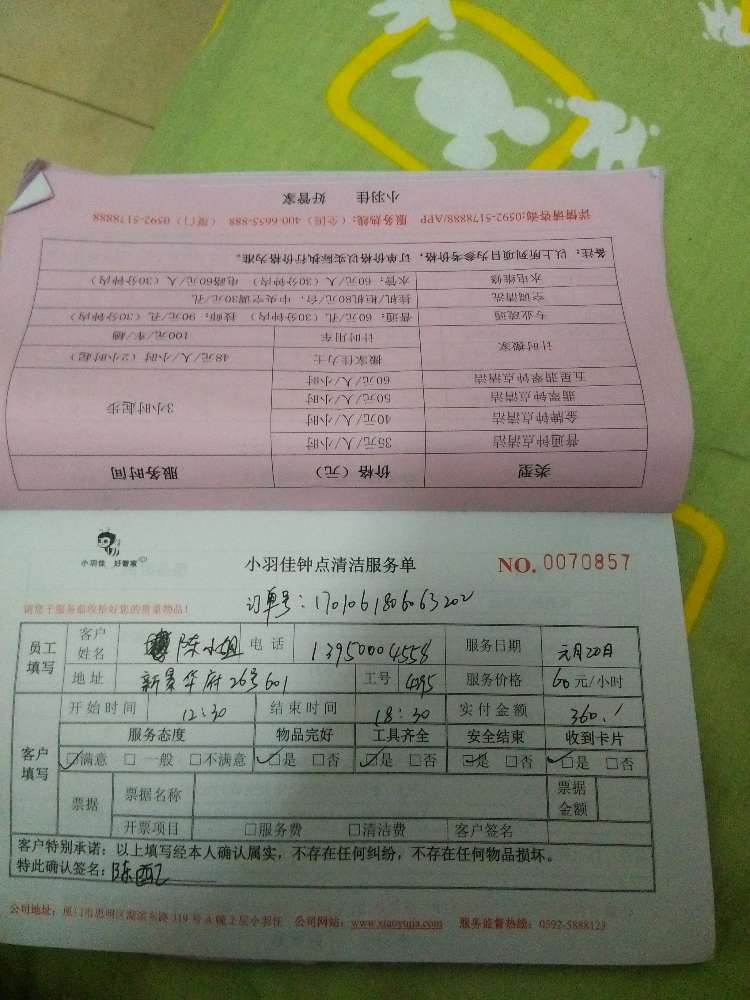 小羽佳 好管家
详情请咨询:0592-5178888/APP 服务热线：(全国) 400-6655-888 (厦门) 0592-5178888
备注：以上所列项目为参考价格，订单价格以实际执行价格为准。
水电维修 水管：60元/人 (30分钟内) 电路60元/人 (30分钟内)
空调清洗 挂机/柜机80元/台，中央空调30元/孔
专业疏通 普通：60元/孔 (30分钟内) 技师：90元/孔 (30分钟内)
计时搬家 计时用车 100元/车/趟
搬家佳力士 48元/人/小时 (2小时起)
五星翡翠钟点清洁 60元/人/小时 3小时起步
翡翠钟点清洁 50元/人/小时
金牌钟点清洁 40元/人/小时
普通钟点清洁 35元/人/小时
类型 价格（元） 服务时间
小羽佳 好管家
小羽佳钟点清洁服务单 NO. 0070857
订单号：1701061806063202
请您于服务前收拾好您的贵重物品！
员工填写 客户姓名 陈小姐 电话 13950004558 服务日期 元月20日
地址 新景华府26号601 工号 4395 服务价格 60元/小时
客户填写 开始时间 12:30 结束时间 18:30 实付金额 360.
服务态度 物品完好 工具齐全 安全结束 收到卡片
☑满意 □一般 □不满意 ☑是 □否 ☑是 □否 ☑是 □否 ☑是 □否
票据 票据名称 票据金额
开票项目 □服务费 □清洁费 客户签名
客户特别承诺：以上填写经本人确认属实，不存在任何纠纷，不存在任何物品损坏。
特此确认签名：陈
公司地址：厦门市思明区湖滨东路319号A幢2层小羽佳 公司网站：www.xiaoyujia.com 服务监督热线：0592-5888123